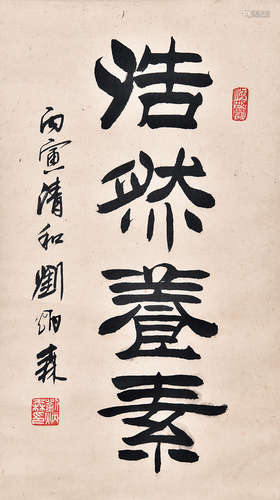 浩然養素
丙寅清和劉炳森